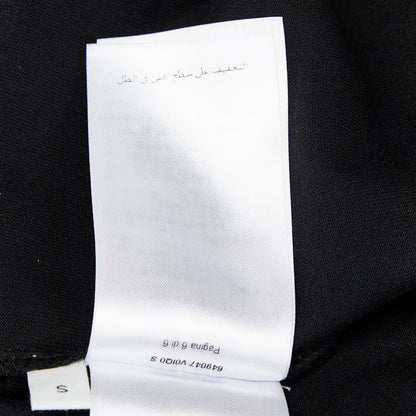 التجفيف على سطح افقي في الظل
Pagina 6 di 6
649047 V0IQ0 S
S